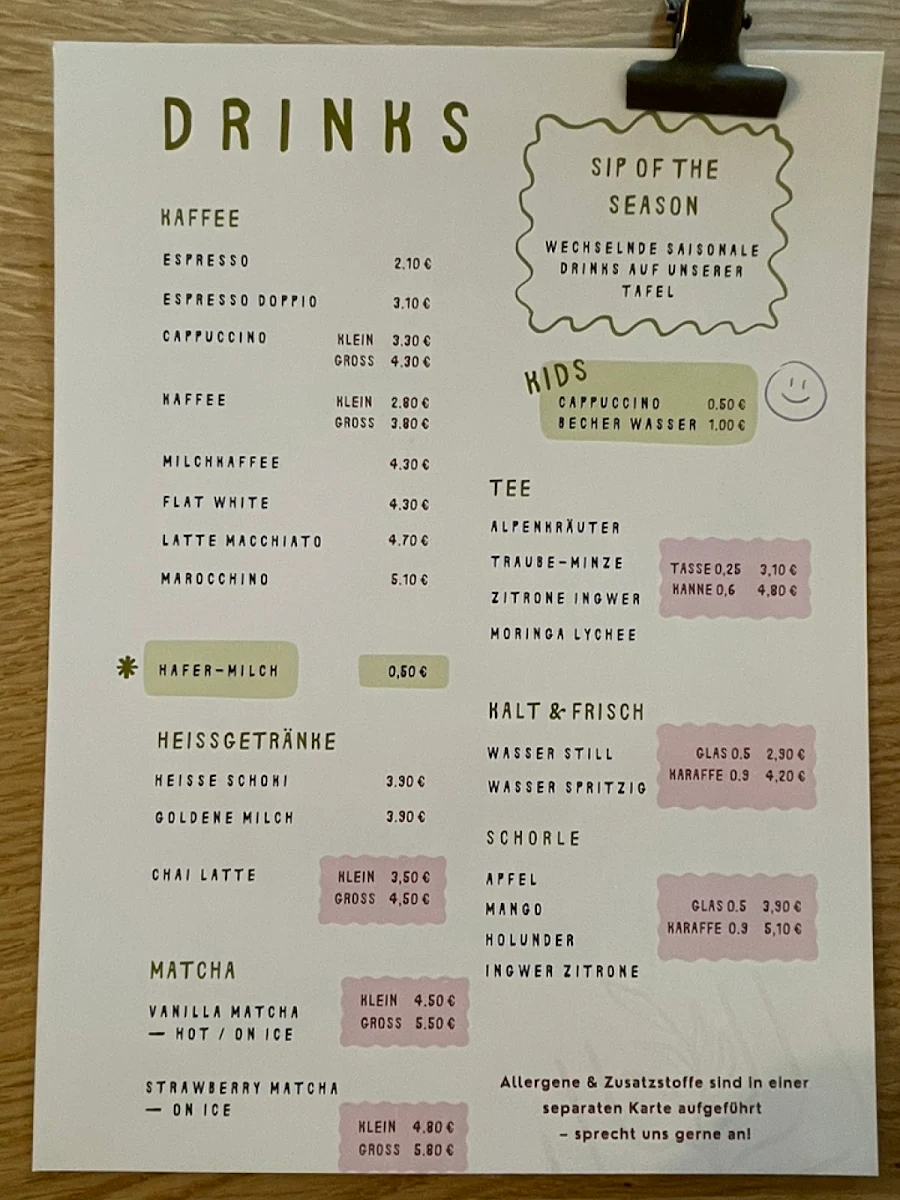 DRINKS
KAFFEE
ESPRESSO 2.10 €
ESPRESSO DOPPIO 3.10 €
CAPPUCCINO KLEIN 3.30 €
GROSS 4.30 €
KAFFEE KLEIN 2.80 €
GROSS 3.80 €
MILCHKAFFEE 4.30 €
FLAT WHITE 4.30 €
LATTE MACCHIATO 4.70 €
MAROCCHINO 5.10 €
* HAFER-MILCH 0,50 €
HEISSGETRÄNKE
HEISSE SCHOKI 3.90 €
GOLDENE MILCH 3.90 €
CHAI LATTE KLEIN 3,50 €
GROSS 4,50 €
MATCHA
VANILLA MATCHA KLEIN 4.50 €
— HOT / ON ICE GROSS 5.50 €
STRAWBERRY MATCHA
— ON ICE KLEIN 4.80 €
GROSS 5.80 €
SIP OF THE
SEASON
WECHSELNDE SAISONALE
DRINKS AUF UNSERER
TAFEL
KIDS
CAPPUCCINO 0.50 €
BECHER WASSER 1.00 €
TEE
ALPENKRÄUTER
TRAUBE-MINZE TASSE 0,25 3,10 €
ZITRONE INGWER KANNE 0,6 4,80 €
MORINGA LYCHEE
KALT & FRISCH
WASSER STILL GLAS 0.5 2,90 €
WASSER SPRITZIG KARAFFE 0.9 4,20 €
SCHORLE
APFEL
MANGO GLAS 0.5 3,90 €
HOLUNDER KARAFFE 0.9 5,10 €
INGWER ZITRONE
Allergene & Zusatzstoffe sind in einer
separaten Karte aufgeführt
– sprecht uns gerne an!